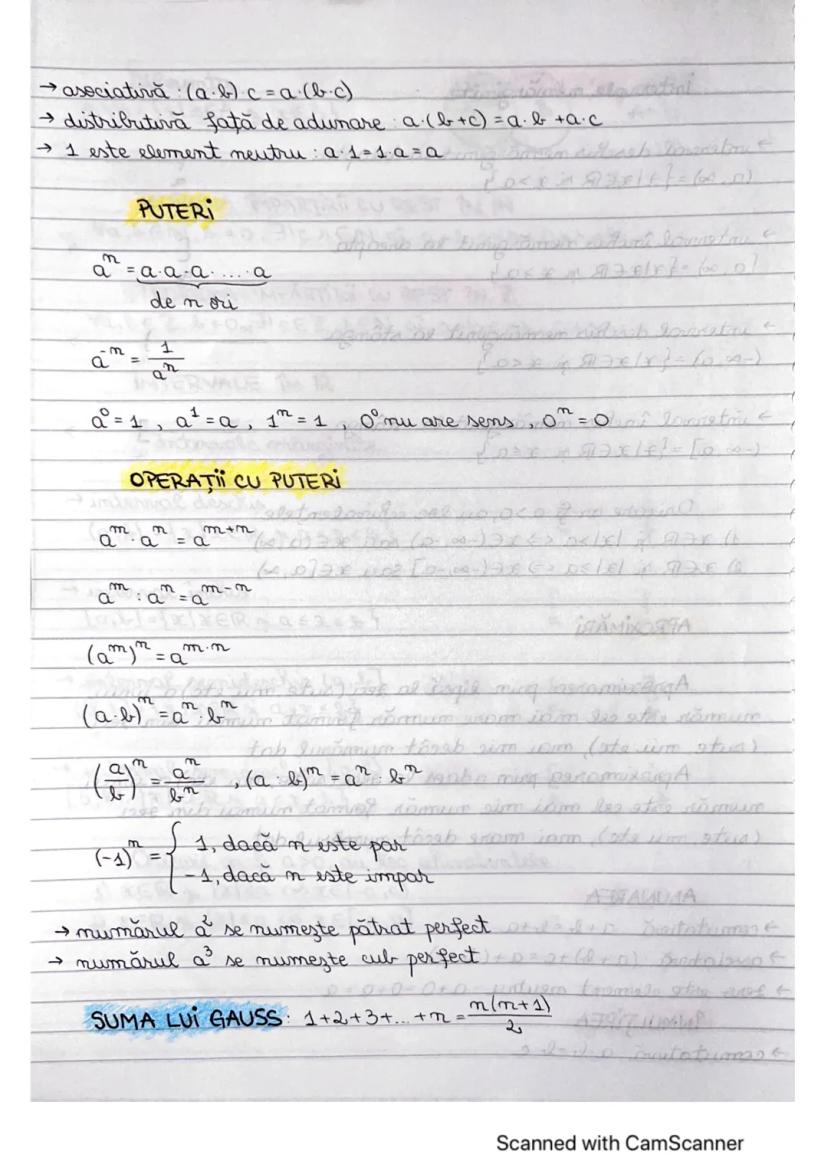 → asociativă : (a·b)·c = a·(b·c)
→ distributivă față de adunare : a·(b+c) = a·b + a·c
→ 1 este element neutru : a·1 = 1·a = a
PUTERI
aⁿ = a·a·a·....·a
de n ori
a⁻ⁿ = 1/aⁿ
a⁰ = 1 , a¹ = a , 1ⁿ = 1 , 0⁰ nu are sens , 0ⁿ = 0
OPERAȚII CU PUTERI
aᵐ · aⁿ = aᵐ⁺ⁿ
aᵐ : aⁿ = aᵐ⁻ⁿ
(aᵐ)ⁿ = aᵐ·ⁿ
(a·b)ⁿ = aⁿ · bⁿ
(a/b)ⁿ = aⁿ/bⁿ , (a : b)ⁿ = aⁿ : bⁿ
(-1)ⁿ = { 1, dacă n este par
-1, dacă n este impar
→ numărul a² se numește pătrat perfect
→ numărul a³ se numește cub perfect
SUMA LUI GAUSS : 1+2+3+...+n = n(n+1)/2
Scanned with CamScanner